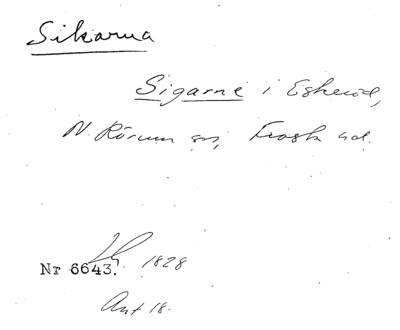 Sikarna
Sigarne i Eskeröd,
N. Rörum sn, Frosta hd.
Nr 6643. 1828
Ant 18.